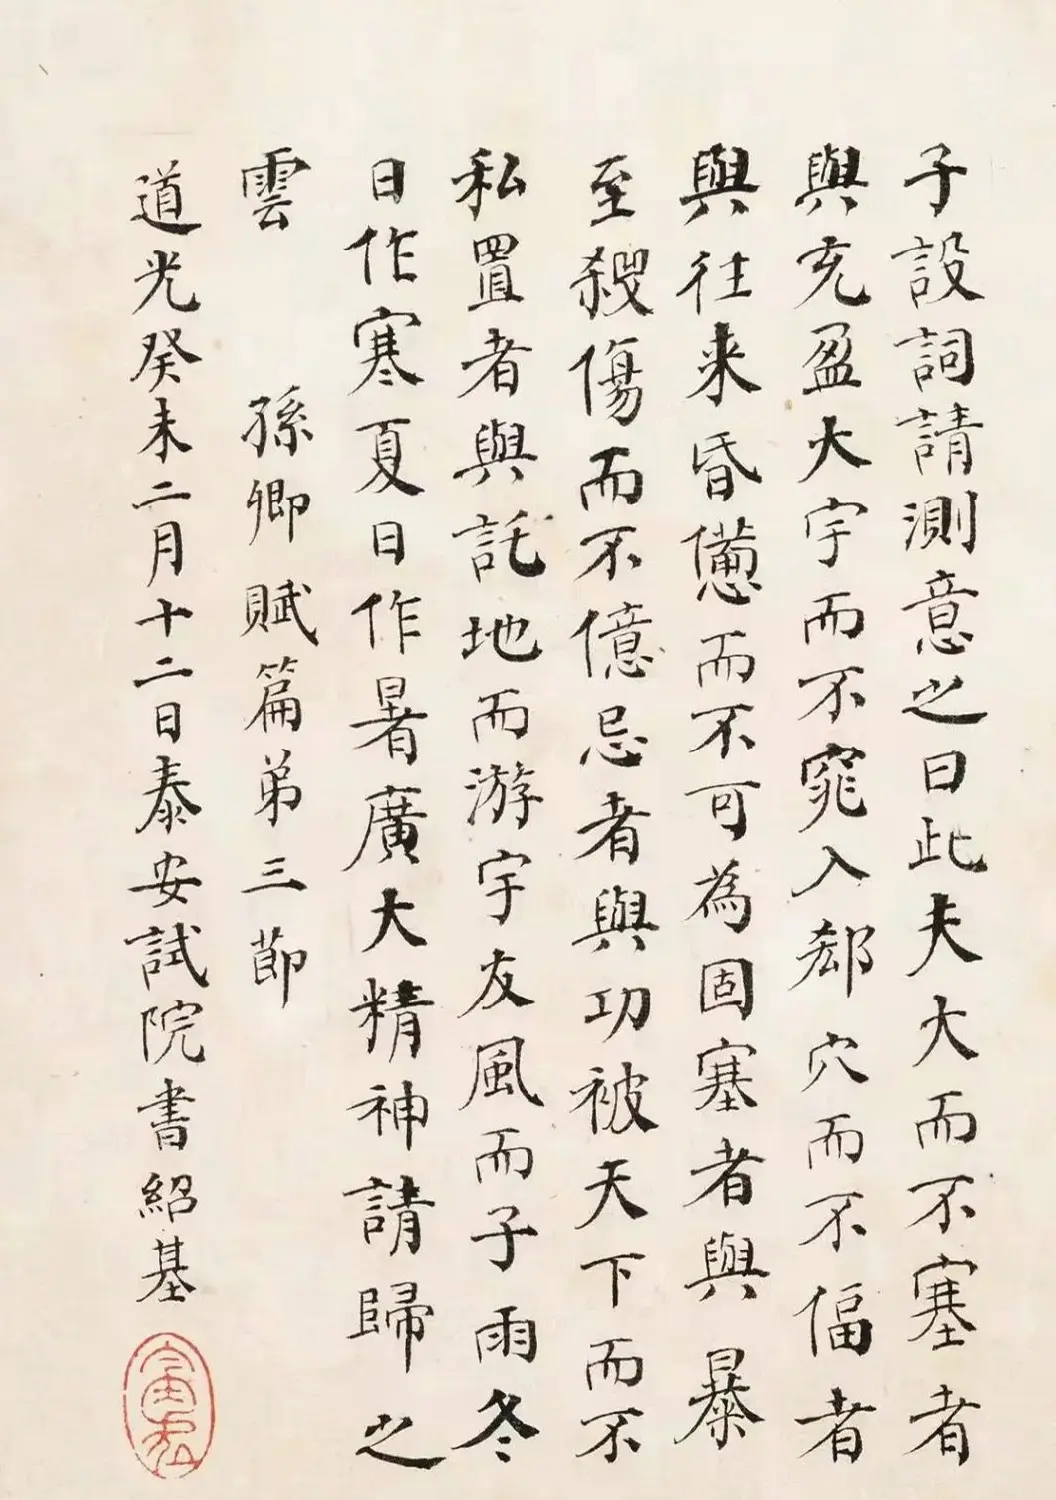 子設詞請測意之曰此夫大而不塞者
與充盈大宇而不窕入郄穴而不偪者
與往来昏憊而不可為固塞者與暴
至殺傷而不億忌者與功被天下而不
私置者與託地而游宇友風而子雨冬
日作寒夏日作暑廣大精神請歸之
雲　孫卿賦篇弟三節
道光癸未二月十二日泰安試院書紹基